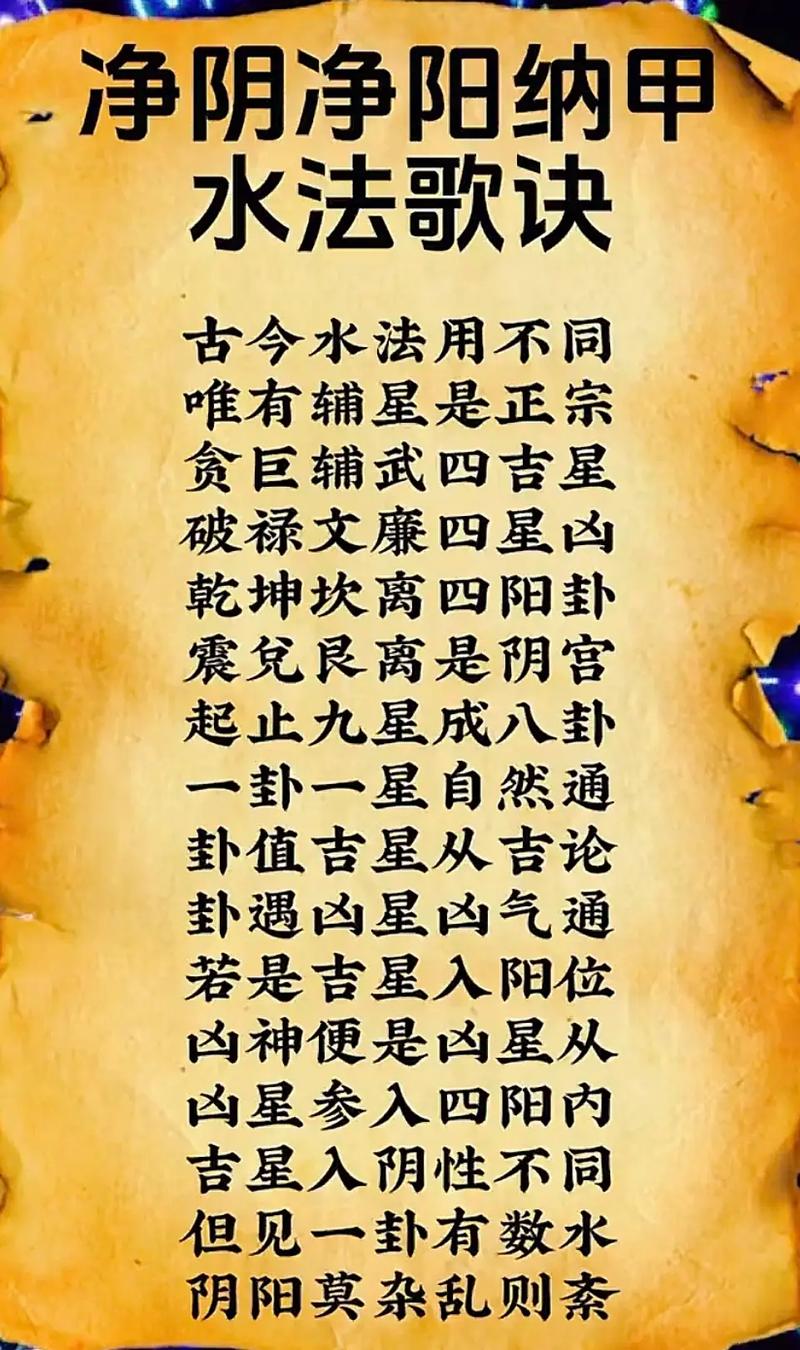 净阴净阳纳甲
水法歌诀
古今水法用不同
唯有辅星是正宗
贪巨辅武四吉星
破禄文廉四星凶
乾坤坎离四阳卦
震兑艮离是阴宫
起止九星成八卦
一卦一星自然通
卦值吉星从吉论
卦遇凶星凶气通
若是吉星入阳位
凶神便是凶星从
凶星参入四阳内
吉星入阴性不同
但见一卦有数水
阴阳莫杂乱则紊